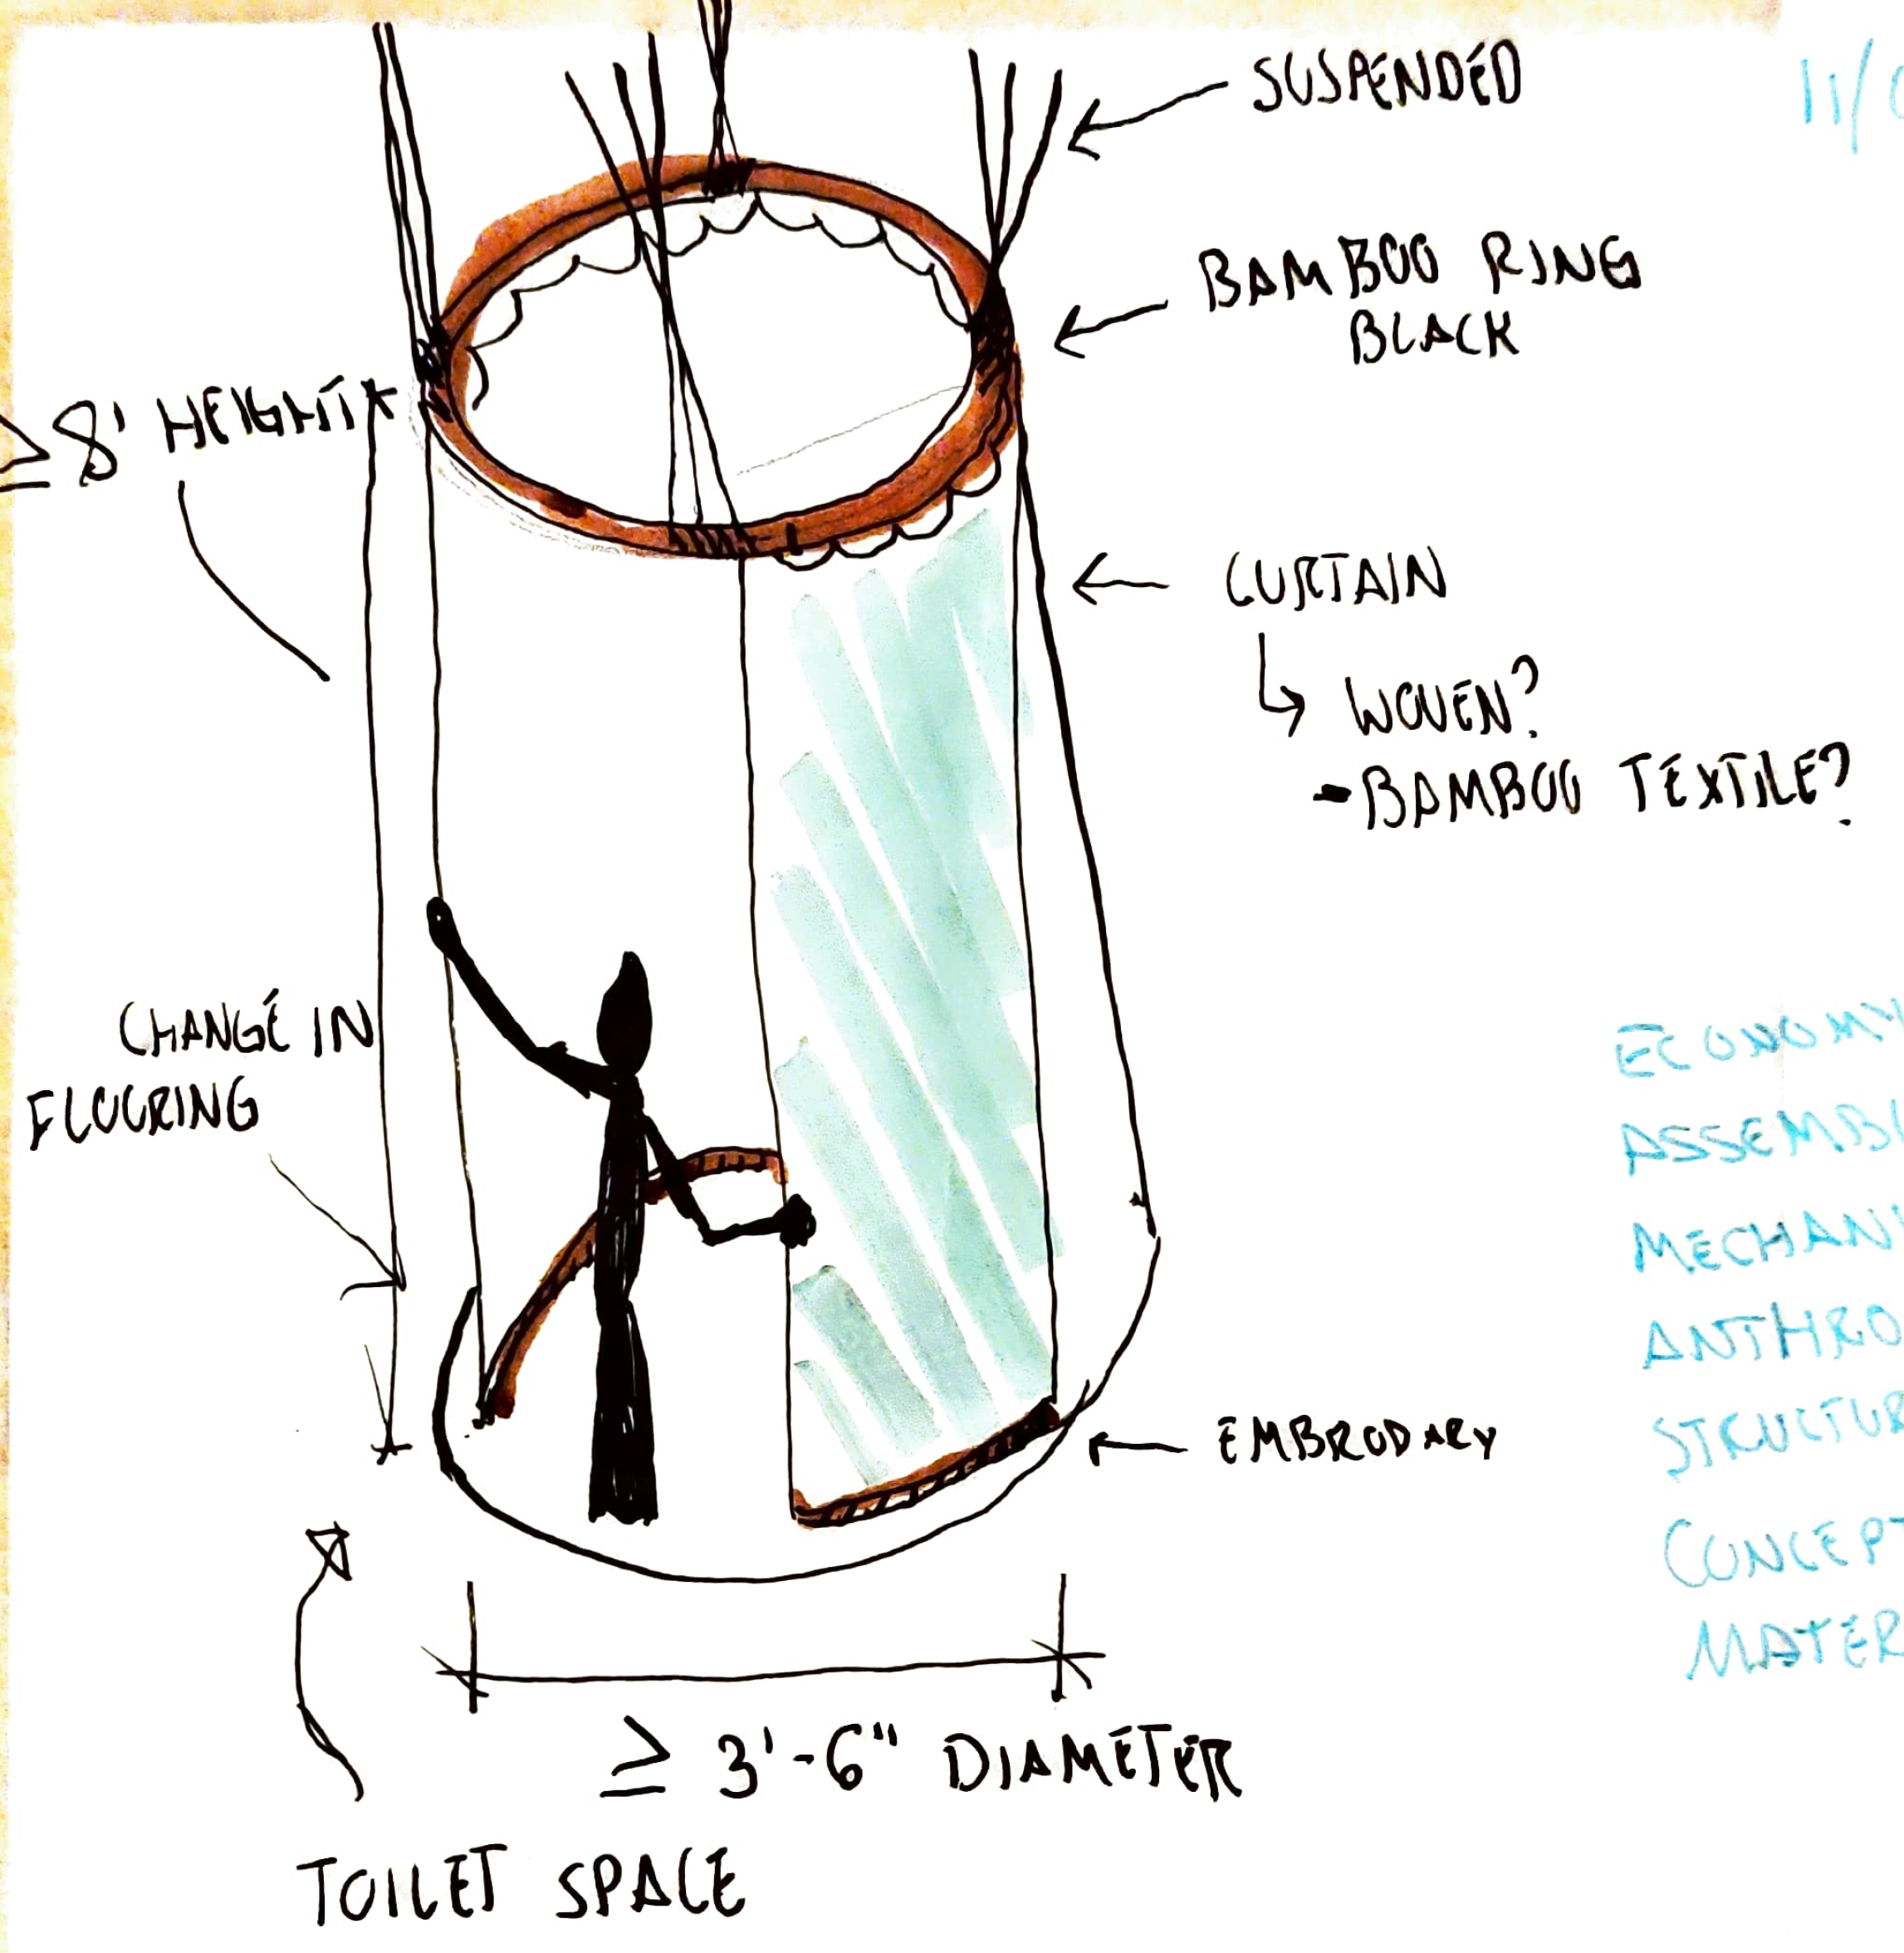 SUSPENDED
11/
BAMBOO RING
BLACK
≥ 8' HEIGHT
CURTAIN
WOVEN?
-BAMBOO TEXTILE?
CHANGE IN
FLOORING
ECONOMY
ASSEMBL
MECHANI
ANTHRO
STRUCTUR
CONCEPT
MATER
EMBRODARY
≥ 3'-6" DIAMETER
TOILET SPACE